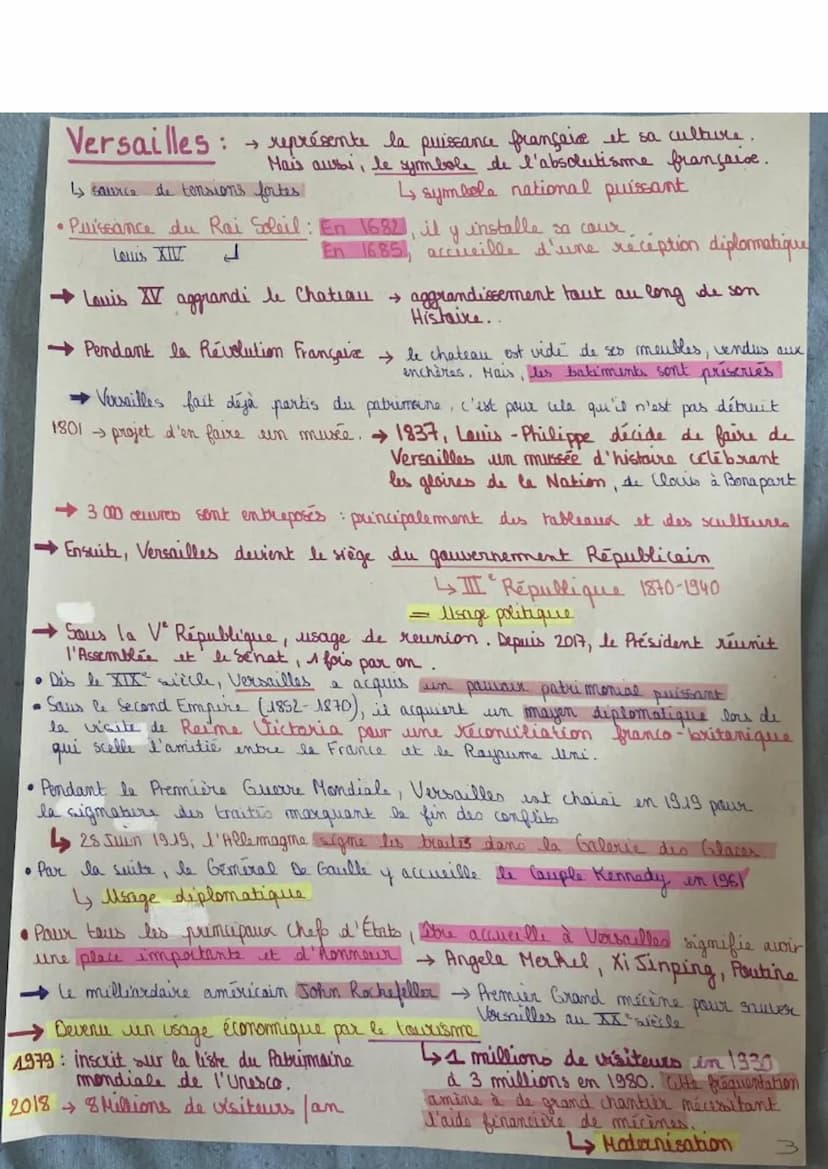 Versailles : → représente la puissance française et sa culture.
Mais aussi, le symbole de l'absolutisme française.
↳ source de tensions fortes ↳ symbole national puissant
• Puissance du Roi Soleil : En 1682, il y installe sa cour.
Louis XIV ↲ En 1685, accueille d'une réception diplomatique
→ Louis XV aggrandi le Chateau → aggrandissement tout au long de son
Histoire..
→ Pendant la Révolution Française → le chateau est vidé de ses meubles, vendus aux
enchères. Mais, les batiments sont préservés
→ Versailles fait déjà partis du patrimoine, c'est pour cela qu'il n'est pas détruit
1801 → projet d'en faire un musée. → 1837, Louis-Philippe décide de faire de
Versailles un mussée d'histoire célébrant
les gloires de la Nation, de Clovis à Bonapart
→ 3 000 œuvres sont entreposés : principalement des tableaux et des scultures
→ Ensuite, Versailles devient le siège du gouvernement Républicain
↳ IIIe République 1870-1940
= Usage politique
→ Sous la Ve République, usage de reunion. Depuis 2017, le Président réunit
l'Assemblée et le Sénat, 1 fois par an.
• Dès le XIXe siècle, Versailles a acquis un pouvoir patrimonial puissant
• Sous le Second Empire (1852-1870), il acquiert un moyen diplomatique lors de
la visite de Reine Victoria pour une réconciliation franco-britanique
qui scelle l'amitié entre la France et le Royaume Uni.
• Pendant la Première Guerre Mondiale, Versailles est choisi en 1919 pour
la signature des traités marquant la fin des conflits
↳ 28 Juin 1919, l'Allemagne signe les traités dans la Galerie des Glaces.
• Par la suite, le Général De Gaulle y accueille le Couple Kennedy en 1961
↳ Usage diplomatique
• Pour tous les principaux Chefs d'États, être accueille à Versailles signifie avoir
une place importante et d'honneur → Angela Merkel, Xi Jinping, Poutine
→ Le milliardaire américain John Rochefeller → Premier Grand mécène pour sauver
Versailles au XXe siècle
→ Devenu un usage économique par le tourisme
1979 : inscrit sur la liste du Patrimoine
mondiale de l'Unesco.
2018 → 8 Millions de visiteurs /an
↳ 1 millions de visiteurs en 1930
à 3 millions en 1980. Cette fréquentation
amène à de grand chantier nécessitant
l'aide financière de mécènes.
↳ Modernisation
3